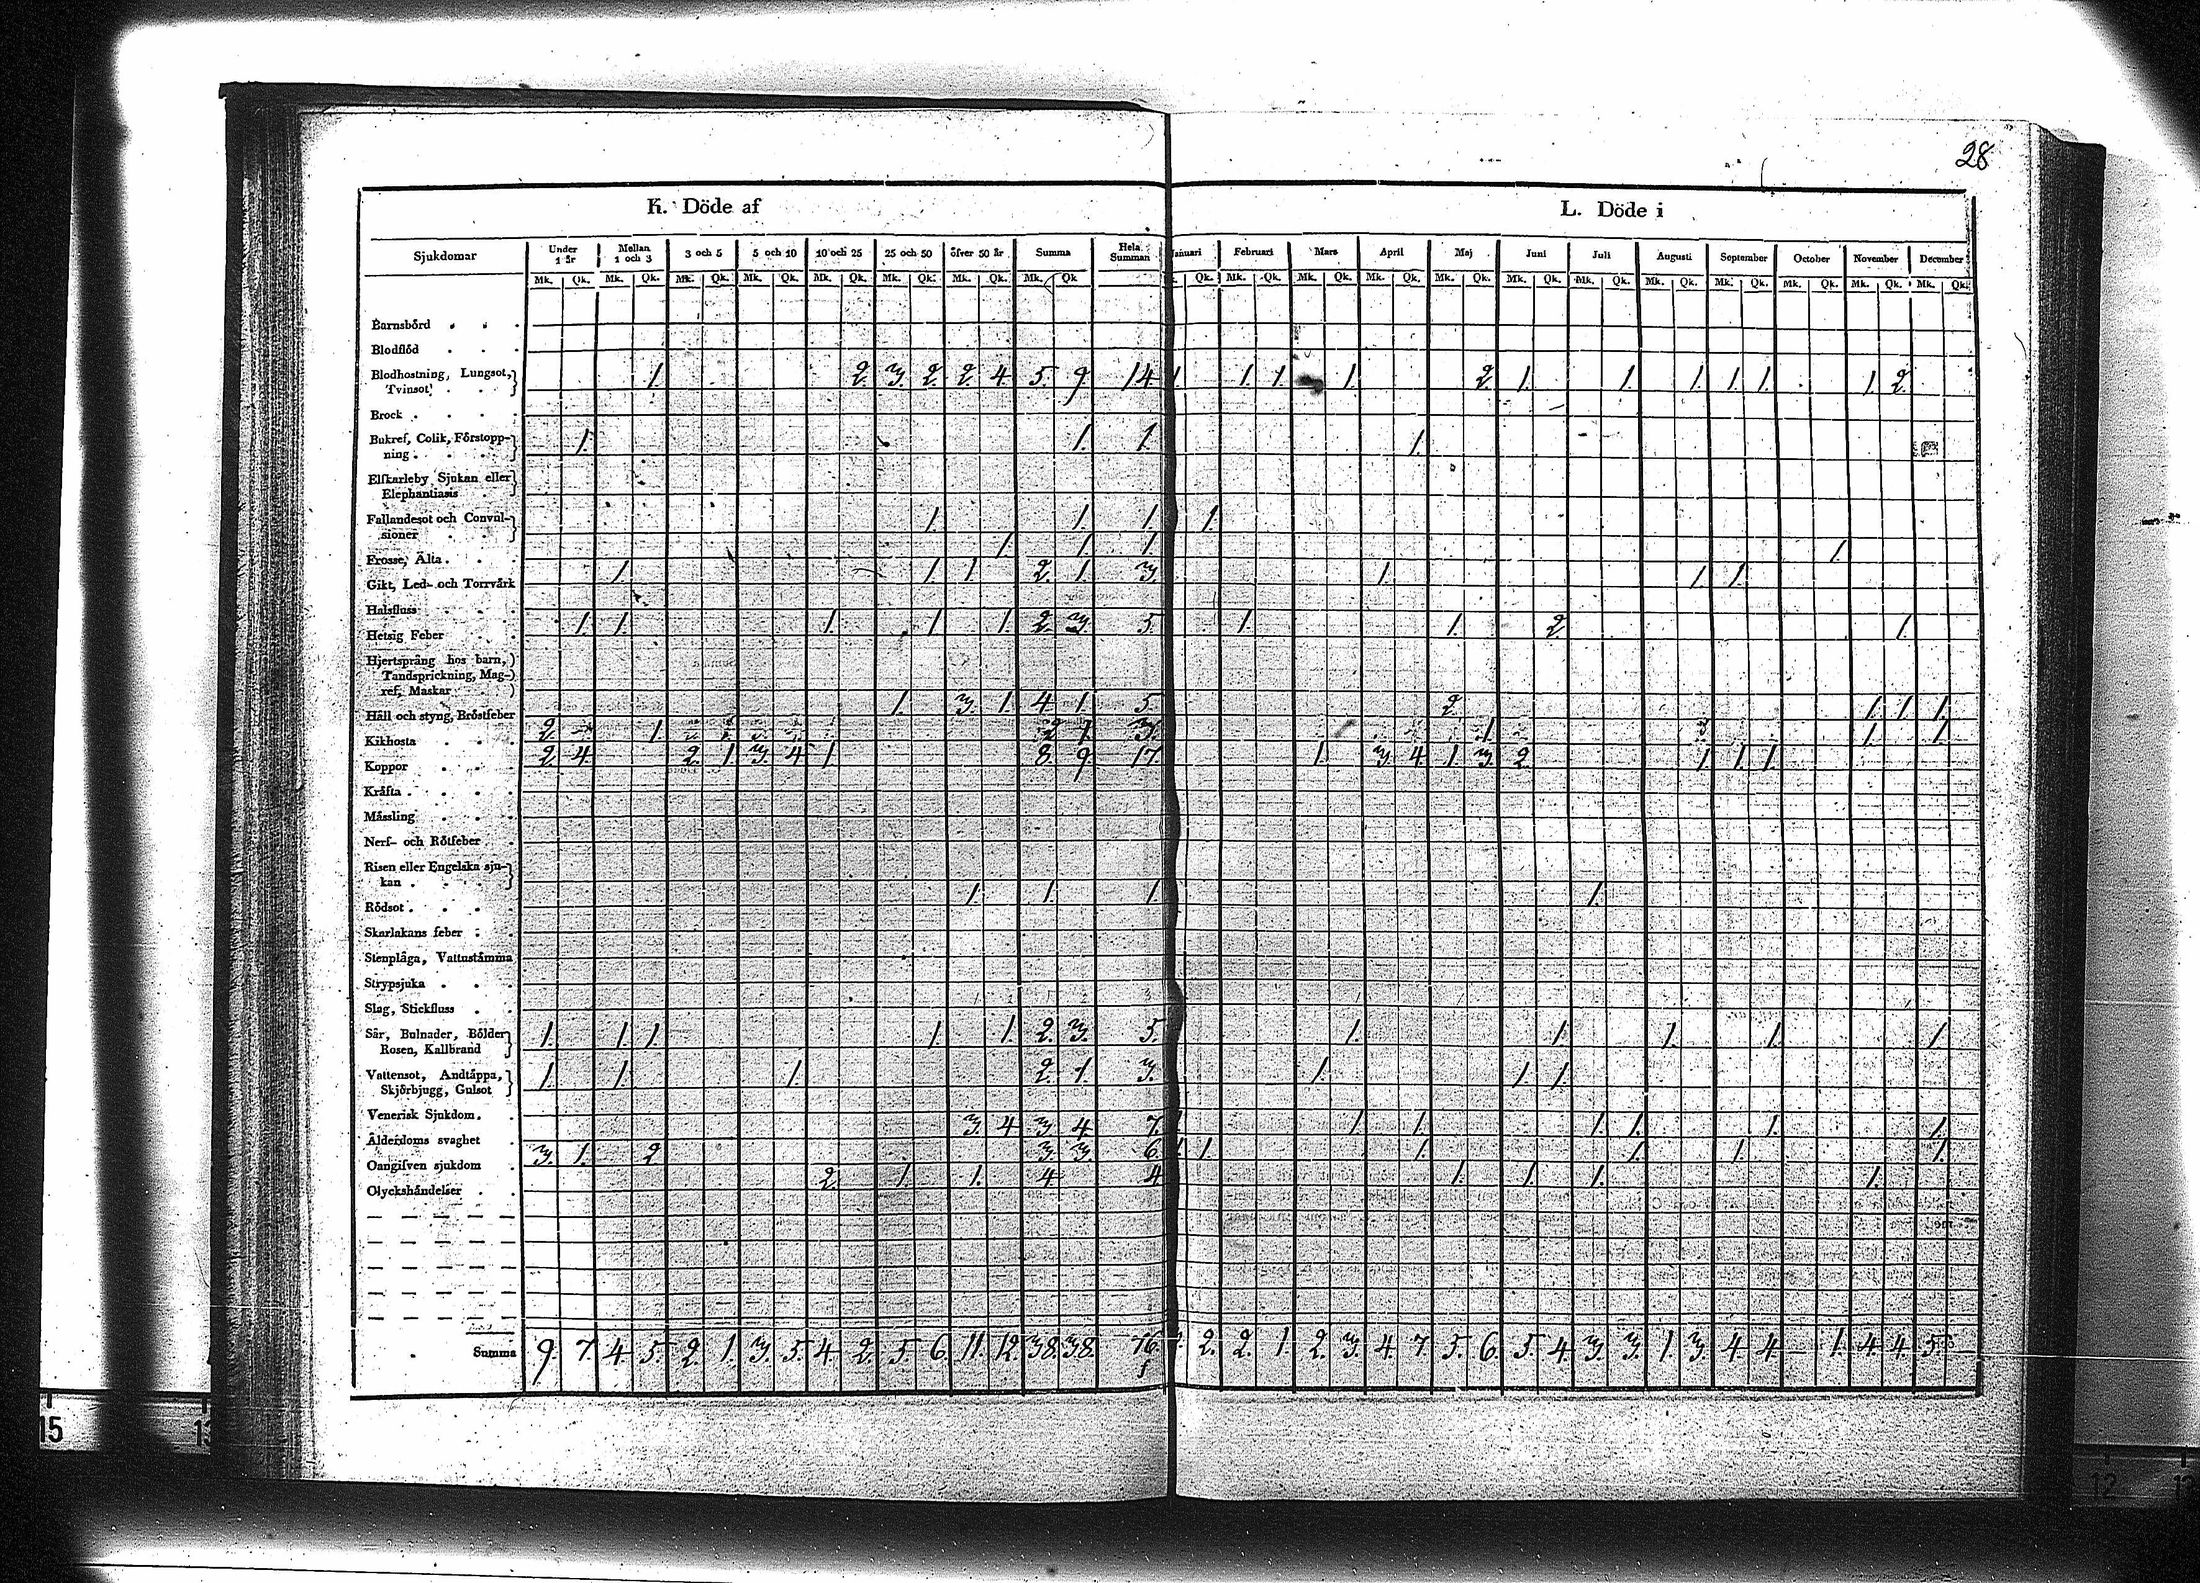 28
K. Döde af L. Döde i
Sjukdomar Under 1 år Mellan 1 och 3 3 och 5 5 och 10 10 och 25 25 och 50 öfver 50 år Summa Hela Summan Januari Februari Mars April Maj Juni Juli Augusti September October November December
Mk. Qk. Mk. Qk. Mk. Qk. Mk. Qk. Mk. Qk. Mk. Qk. Mk. Qk. Mk. Qk Qk. Mk. Qk. Mk. Qk. Mk. Qk. Mk. Qk. Mk. Qk. Mk. Qk. Mk. Qk. Mk. Qk. Mk. Qk. Mk. Qk. Mk. Qk.
Barnsbörd
Blodflöd
Blodhostning, Lungsot,
Tvinsot 1. 2. 3. 2. 2. 4. 5. 9. 14 1. 1. 1. 1. 2. 1. 1. 1. 1. 1. 1. 2.
Brock
Bukref, Colik, Förstopp-
ning 1. 1. 1. 1.
Elfkarleby Sjukan eller
Elephantiasis
Fallandesot och Convul-
sioner 1. 1. 1. 1.
Frosse, Älta 1. 1. 1. 1.
Gikt, Led- och Torrvärk 1. 1. 1. 2. 1. 3. 1. 1. 1.
Halsfluss
Hetsig Feber 1. 1. 1. 1. 1. 2. 3. 5. 1. 1. 2. 1.
Hjertsprång hos barn,
Tandsprickning, Mag-
ref, Maskar
Håll och styng, Bröstfeber 1. 3. 1. 4 1. 5. 2. 1. 1. 1.
Kikhosta 2. 1. 2 1. 3. 1. 1. 1.
Koppor 2. 4. 2. 1. 3. 4 1. 8. 9. 17. 1. 3. 4. 1. 3. 2. 1. 1. 1.
Kräfta
Mässling
Nerf- och Rötfeber
Risen eller Engelska sju-
kan
Rödsot 1. 1. 1. 1.
Skarlakans feber
Stenplåga, Vattustämma
Strypsjuka
Slag, Stickfluss
Sår, Bulnader, Bölder
Rosen, Kallbrand 1. 1. 1. 1. 1. 2. 3. 5. 1. 1. 1. 1. 1.
Vattensot, Andtäppa,
Skjörbjugg, Gulsot 1. 1. 1. 2. 1. 3. 1. 1. 1.
Venerisk Sjukdom
Ålderdoms svaghet 3. 4 3. 4. 7. 1. 1. 1. 1. 1. 1. 1.
Oangifven sjukdom 3. 1. 2 3. 3. 6. 1. 1. 1. 1. 1. 1.
Olyckshändelser 2. 1. 1. 4 4 1. 1. 1. 1.
Summa 9. 7. 4. 5. 2. 1. 3. 5. 4. 2. 5. 6. 11. 12. 38. 38. 76. 2. 2. 1. 2. 3. 4. 7. 5. 6. 5. 4. 3. 3. 1. 3. 4 4 1. 4 4. 5
15 12